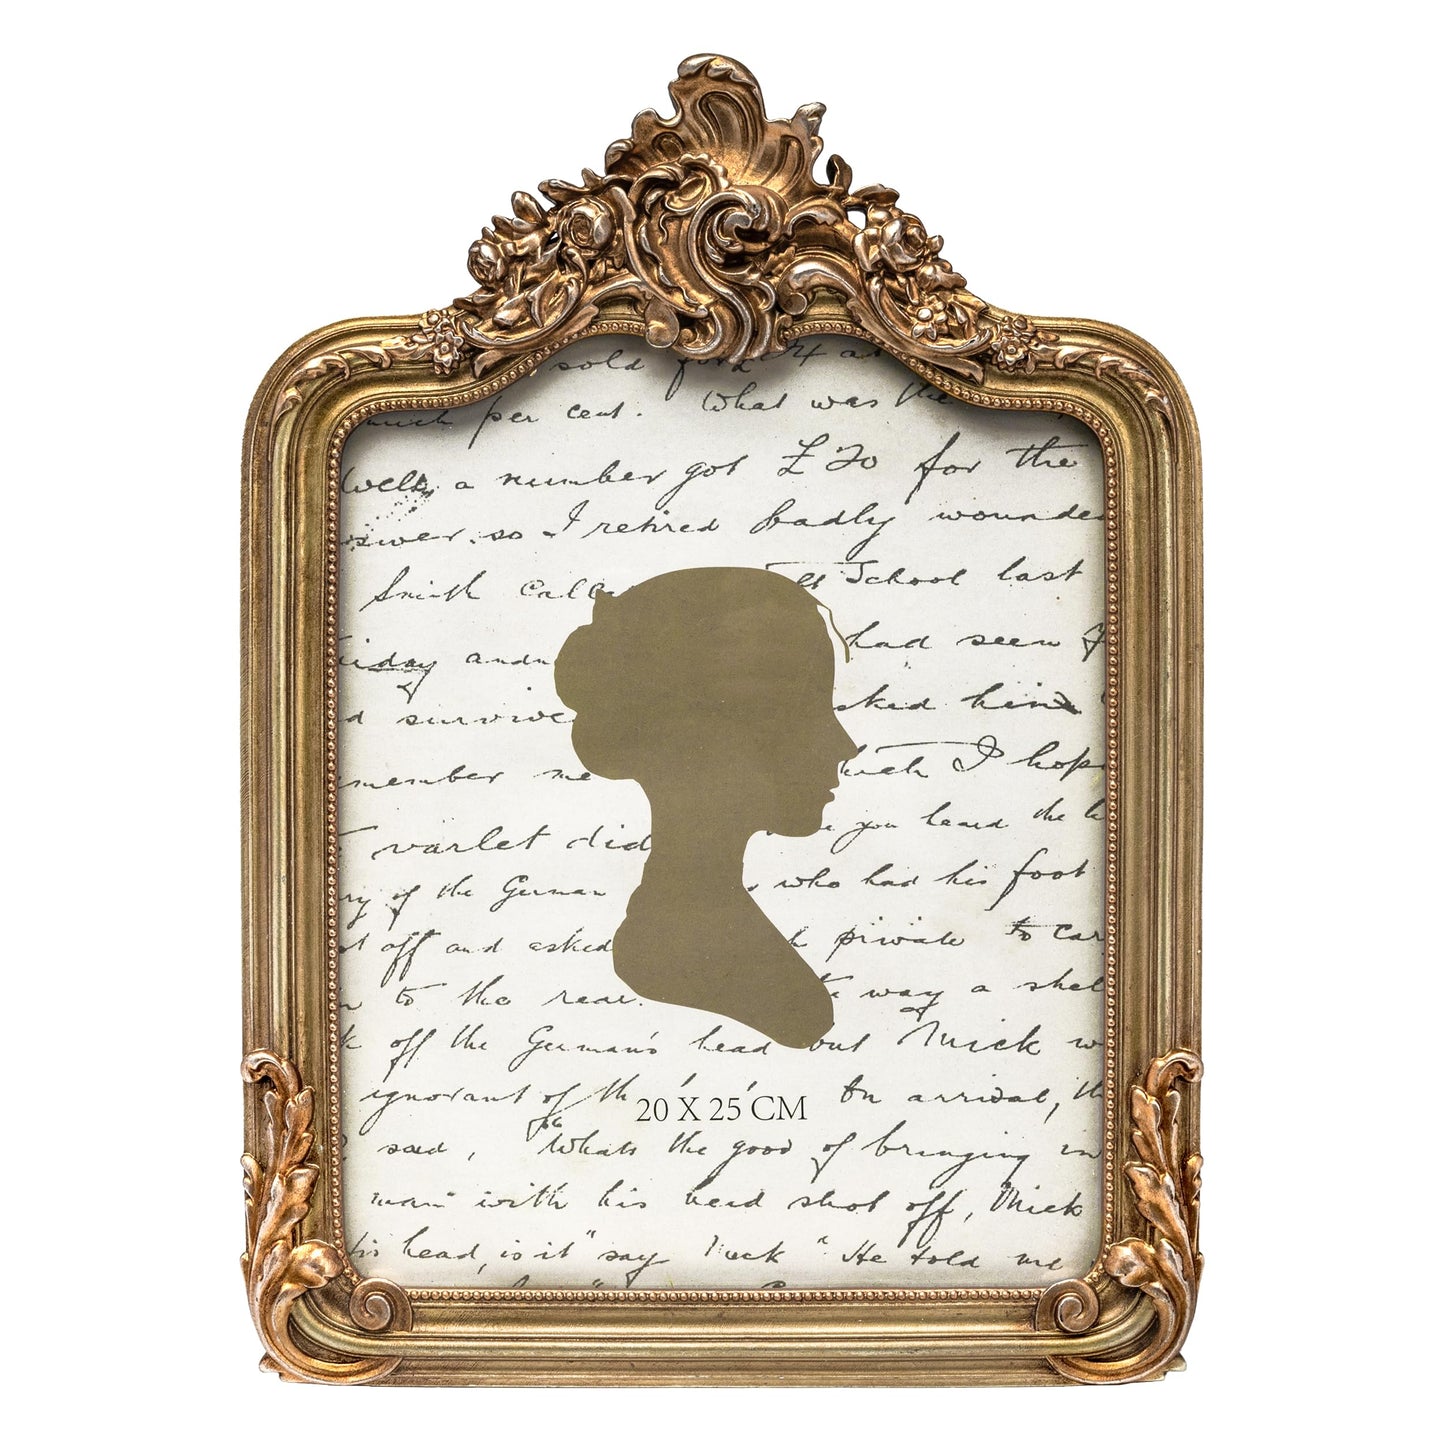 sold for 4 a
much per cent. What was the
Well, a number got £20 for the
so I retired badly wounde
Smith Calle at School last
iday and had seen
d survive sked him
member me which I hop
varlet did you heard the
ry of the German who had his foot
ot off and asked private to car
to the rear. way a shel
k off the German's head but Mick w
ignorant of th On arrival, th
20 X 25 CM
said, "Whats the good of bringing
man" with his head shot off, Mick
his head, is it" say Mick "He told me